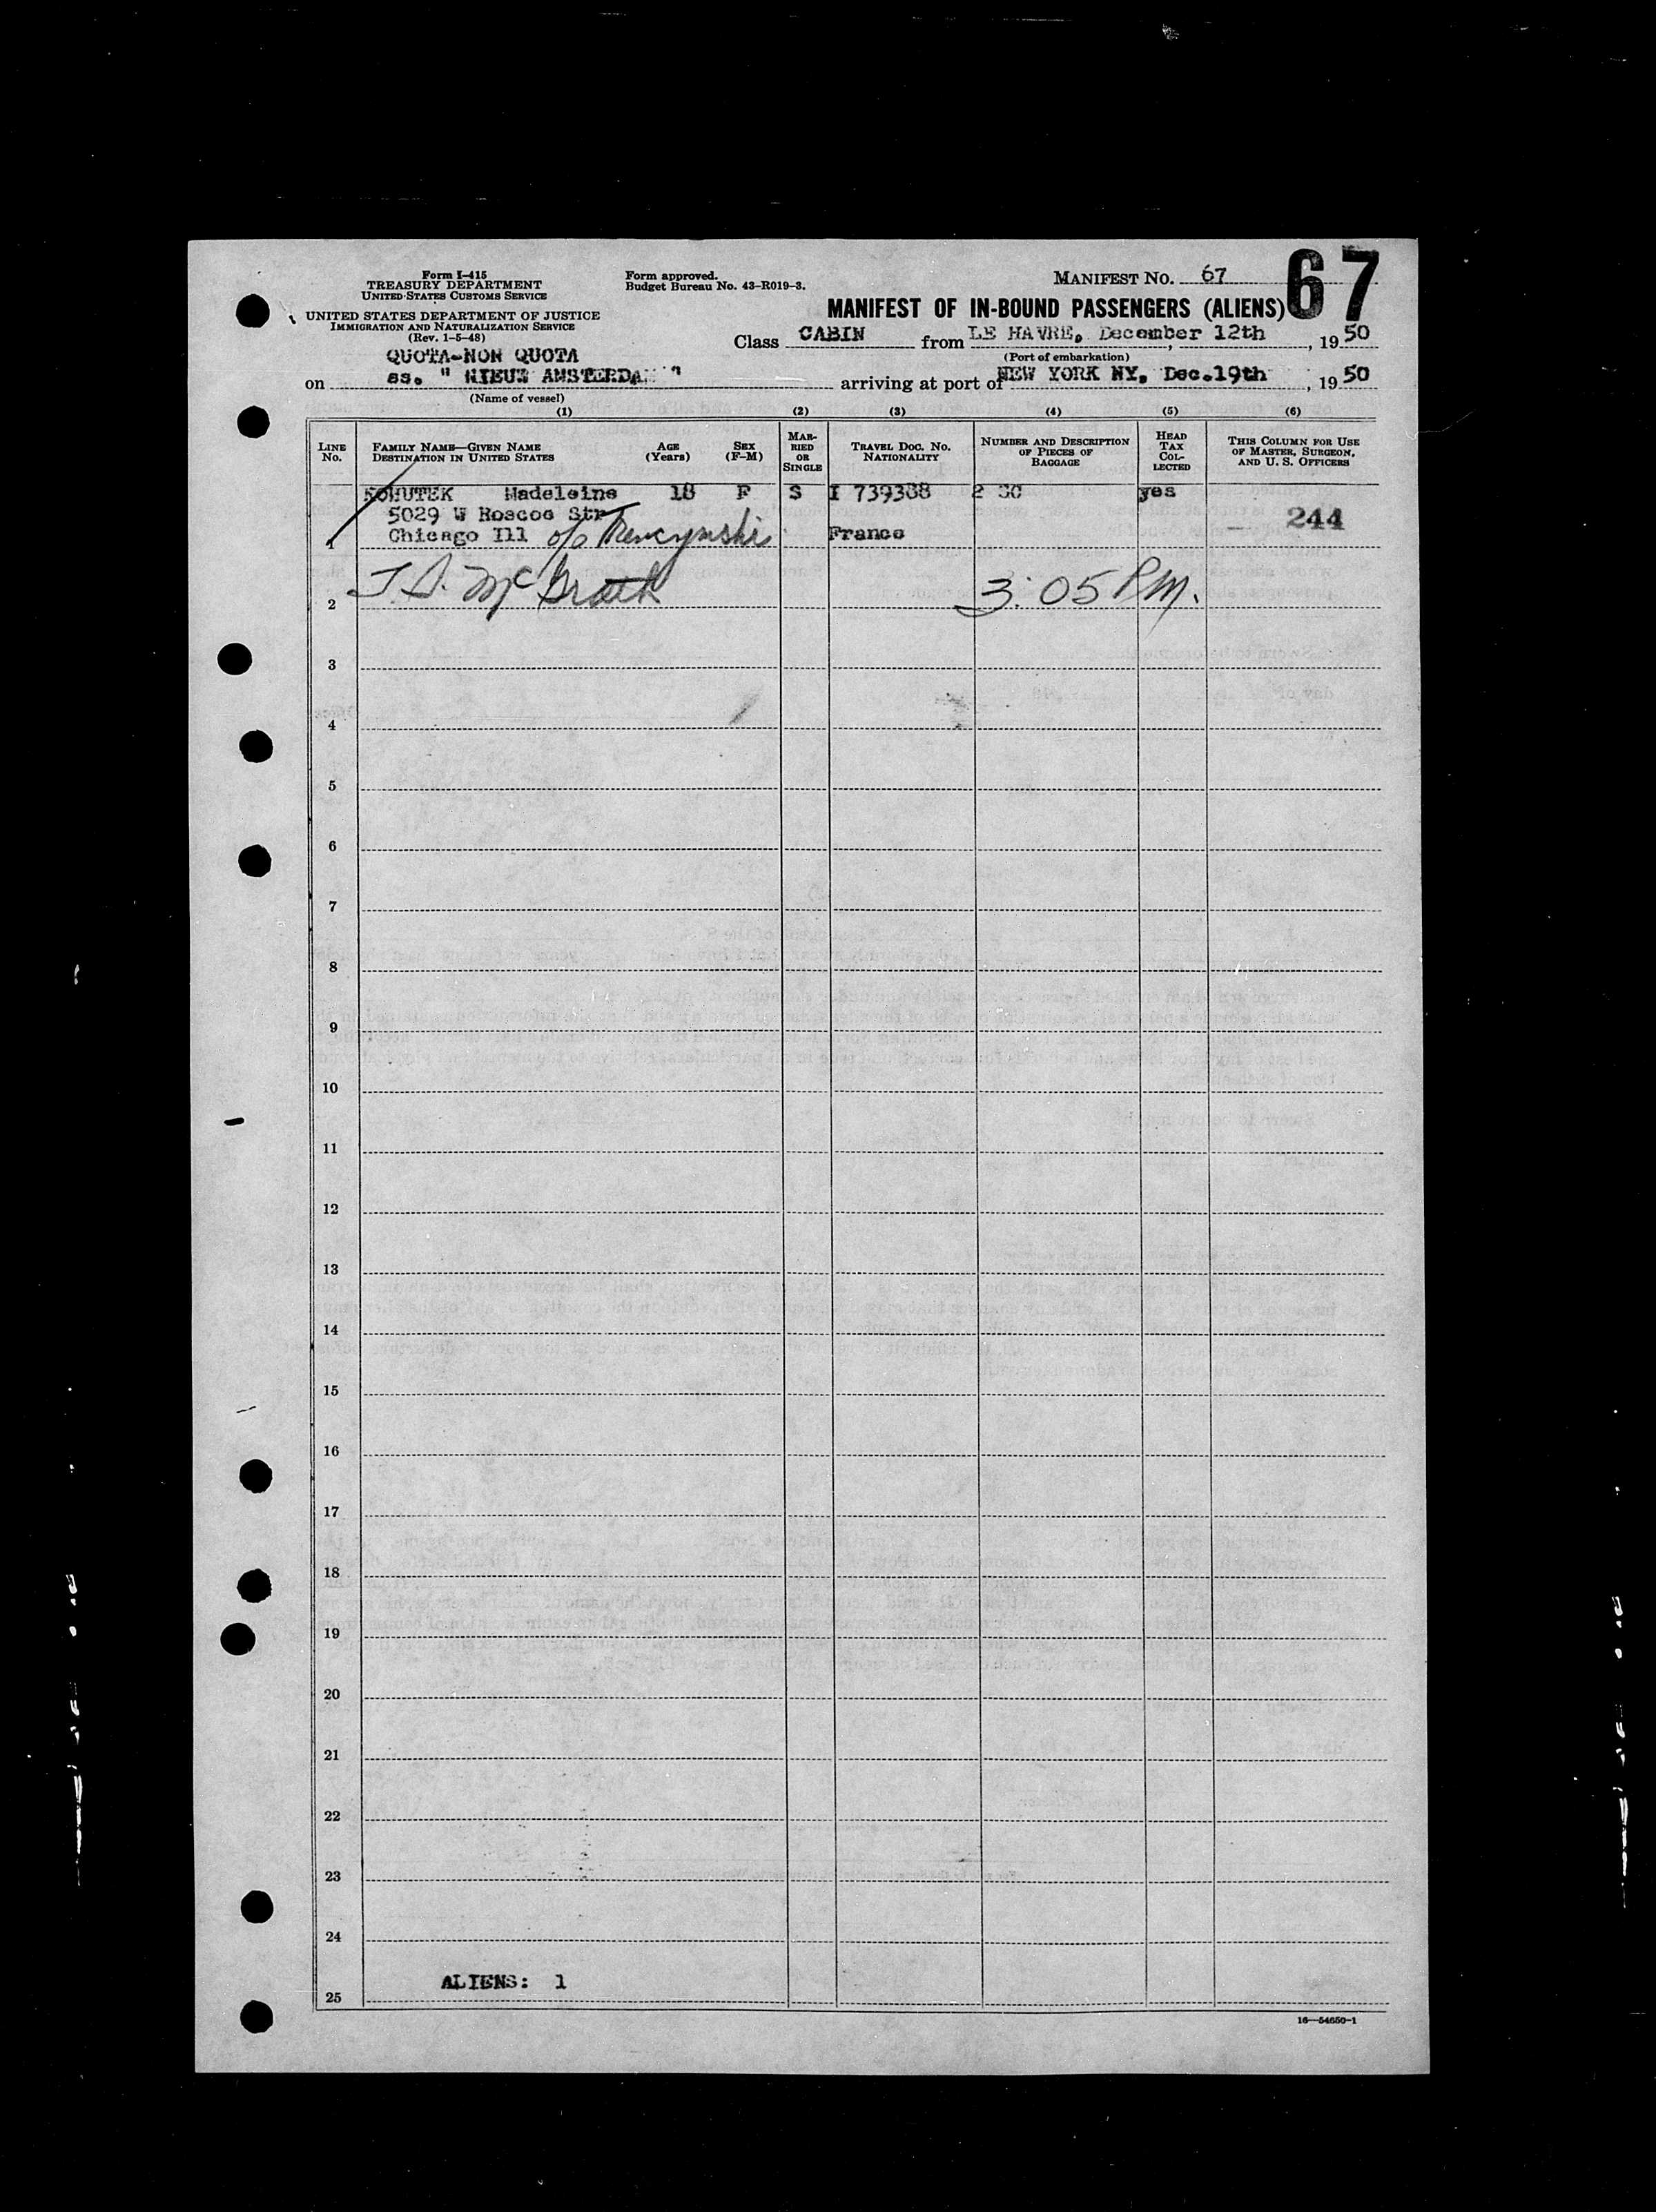 Form I-415
TREASURY DEPARTMENT
UNITED STATES CUSTOMS SERVICE
UNITED STATES DEPARTMENT OF JUSTICE
IMMIGRATION AND NATURALIZATION SERVICE
(Rev. 1-5-48)
Form approved.
Budget Bureau No. 43-R019-3.
MANIFEST NO. 67
67
MANIFEST OF IN-BOUND PASSENGERS (ALIENS)
Class CABIN from LE HAVRE, December 12th, 1950
(Port of embarkation)
QUOTA-NON QUOTA
on ss. " NIEUW AMSTERDAM " arriving at port of NEW YORK NY, Dec.19th, 1950
(Name of vessel)
(1) (2) (3) (4) (5) (6)
LINE No.
FAMILY NAME—GIVEN NAME
DESTINATION IN UNITED STATES
AGE (Years)
SEX (F-M)
MARRIED OR SINGLE
TRAVEL DOC. NO.
NATIONALITY
NUMBER AND DESCRIPTION
OF PIECES OF
BAGGAGE
HEAD TAX COLLECTED
THIS COLUMN FOR USE
OF MASTER, SURGEON,
AND U. S. OFFICERS
KOHUTEK Madeleine 18 F S I 739388 2 yes
5029 W Roscoe Str
244
1 Chicago Ill France
2 McGrath 3:05 PM.
3
4
5
6
7
8
9
10
11
12
13
14
15
16
17
18
19
20
21
22
23
24
ALIENS: 1
25
16—54650-1